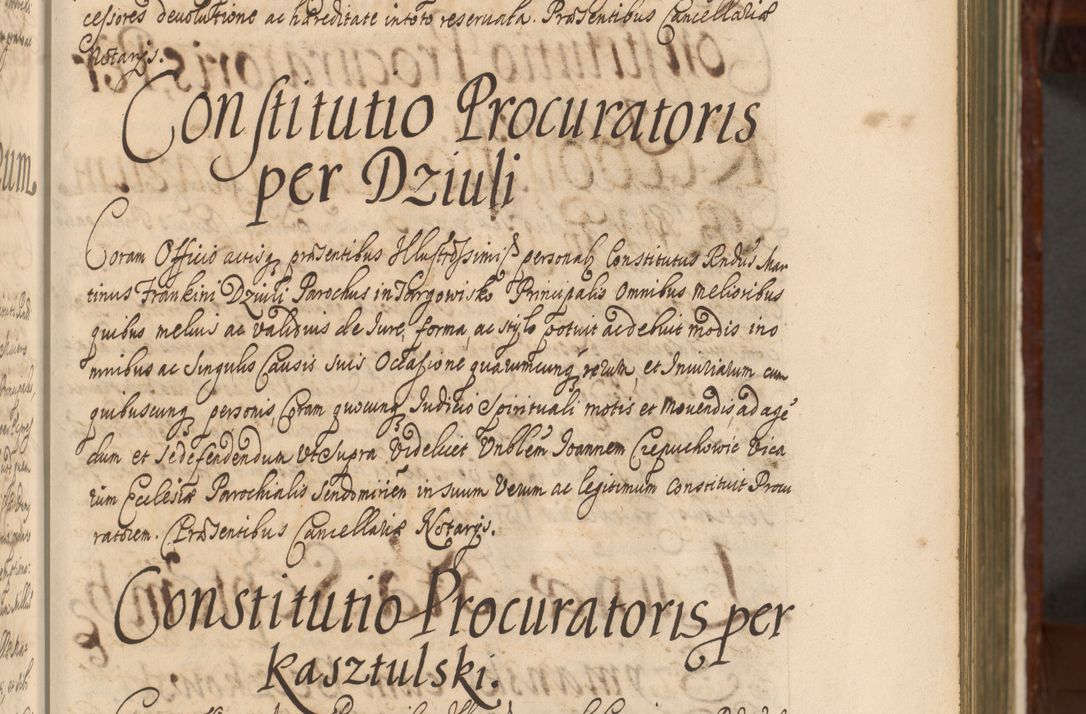 cessores devolutione ac hæreditate in toto reservata. Præsentibus Cancellariæ
Notarijs.
Constitutio Procuratoris
per Dziuli
Coram Officio actisq præsentibus Illustrissimis personalr Constitutus Rndus Mar
tinus Frankini Dziuli Parochus in Targowisko Principalis Omnibus melioribus
quibus melius ac validius de Jure, forma, ac stylo potuit ac debuit modis in o
mnibus ac singulis Causis suis Occasione quarumcunq rerum, et Iniuriarum cum
quibuscunq personis, Coram quocunq Judicio Spirituali motis et movendis, ad age
dum et se defendendum ut supra Videlicet Vnblem Joannem Czepuchowic Vica
rium Ecclesiæ Parochialis Sendomirien in suum Verum ac legitimum constituit Procu
ratorem. Præsentibus Cancellariæ Notarijs.
Constitutio Procuratoris per
Kasztulski.